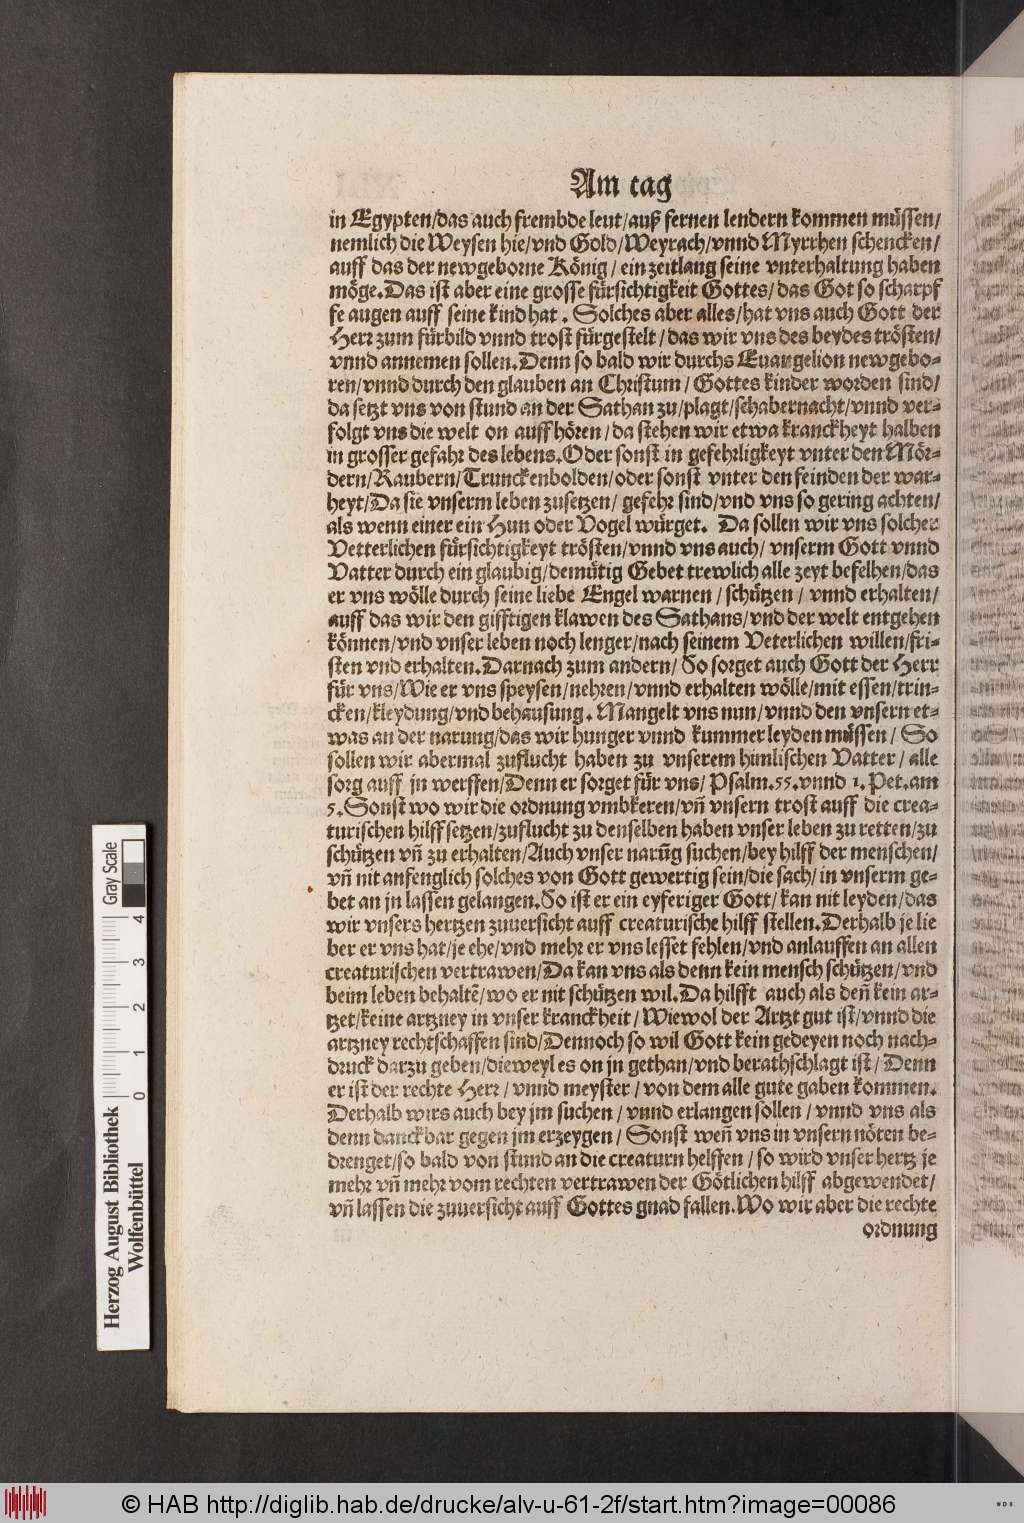 Am tag
in Egypten/das auch frembde leut/auß fernen lendern kommen müssen/
nemlich die Weysen hie/vnd Gold/Weyrach/vnnd Myrrhen schencken/
auff das der newgeborne König/ein zeitlang seine vnterhaltung haben
möge.Das ist aber eine grosse fürsichtigkeit Gottes/das Got so scharpf
fe augen auff seine kind hat. Solches aber alles/hat vns auch Gott der
Herr zum fürbild vnnd trost fürgestelt/das wir vns des beydes trösten/
vnnd annemen sollen.Denn so bald wir durchs Euangelion newgebo-
ren/vnnd durch den glauben an Christum/Gottes kinder worden sind/
da setzt vns von stund an der Sathan zu/plagt/schabernacht/vnnd ver-
folgt vns die welt on auffhören/da stehen wir etwa kranckheyt halben
in grosser gefahr des lebens.Oder sonst in gefehrligkeyt vnter den Mör-
dern/Raubern/Trunckenbolden/oder sonst vnter den feinden der war-
heyt/Da sie vnserm leben zusetzen/gefehr sind/vnd vns so gering achten/
als wenn einer ein Hun oder Vogel würget. Da sollen wir vns solcher
Vetterlichen fürsichtigkeyt trösten/vnnd vns auch/vnserm Gott vnnd
Vatter durch ein glaubig/demütig Gebet trewlich alle zeyt befelhen/das
er vns wölle durch seine liebe Engel warnen/schützen/vnnd erhalten/
auff das wir den gifftigen klawen des Sathans/vnd der welt entgehen
können/vnd vnser leben noch lenger/nach seinem Veterlichen willen/fri-
sten vnd erhalten.Darnach zum andern/So sorget auch Gott der Herr
für vns/Wie er vns speysen/nehren/vnnd erhalten wölle/mit essen/trin-
cken/kleydung/vnd behausung. Mangelt vns nun/vnnd den vnsern et-
was an der narung/das wir hunger vnnd kummer leyden müssen/So
sollen wir abermal zuflucht haben zu vnserem himlischen Vatter/alle
sorg auff jn werffen/Denn er sorget für vns/Psalm.55.vnnd 1.Pet.am
5.Sonst wo wir die ordnung vmbkeren/vñ vnsern trost auff die crea-
turischen hilff setzen/zuflucht zu denselben haben vnser leben zu retten/zu
schützen vñ zu erhalten/Auch vnser narũg suchen/bey hilff der menschen/
vñ nit anfenglich solches von Gott gewertig sein/die sach/in vnserm ge-
bet an jn lassen gelangen.So ist er ein eyferiger Gott/kan nit leyden/das
wir vnsers hertzen zuuersicht auff creaturische hilff stellen.Derhalb je lie
ber er vns hat/je ehe/vnd mehr er vns lesset fehlen/vnd anlauffen an allen
creaturischen vertrawen/Da kan vns als denn kein mensch schützen/vnd
beim leben behaltẽ/wo er nit schützen wil.Da hilfft auch als deñ kein ar-
tzet/keine artzney in vnser kranckheit/Wiewol der Artzt gut ist/vnnd die
artzney rechtschaffen sind/Dennoch so wil Gott kein gedeyen noch nach-
druck darzu geben/dieweyl es on jn gethan/vnd berathschlagt ist/Denn
er ist der rechte Herr/vnnd meyster/von dem alle gute gaben kommen.
Derhalb wirs auch bey jm suchen/vnnd erlangen sollen/vnnd vns als
denn danckbar gegen jm erzeygen/Sonst weñ vns in vnsern nöten be-
drenget/so bald von stund an die creaturn helffen/so wird vnser hertz je
mehr vñ mehr vom rechten vertrawen der Götlichen hilff abgewendet/
vñ lassen die zuuersicht auff Gottes gnad fallen.Wo wir aber die rechte
ordnung
Gray Scale
4 3 2 1 0
Herzog August Bibliothek
Wolfenbüttel
© HAB http://diglib.hab.de/drucke/alv-u-61-2f/start.htm?image=00086